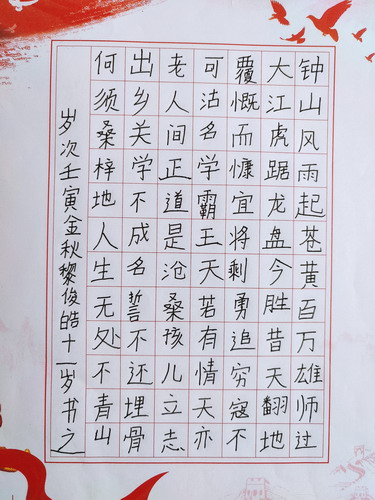 钟山风雨起苍黄百万雄师过
大江虎踞龙盘今胜昔天翻地
覆慨而慷宜将剩勇追穷寇不
可沽名学霸王天若有情天亦
老人间正道是沧桑孩儿立志
出乡关学不成名誓不还埋骨
何须桑梓地人生无处不青山
岁次壬寅金秋黎俊皓十一岁书之